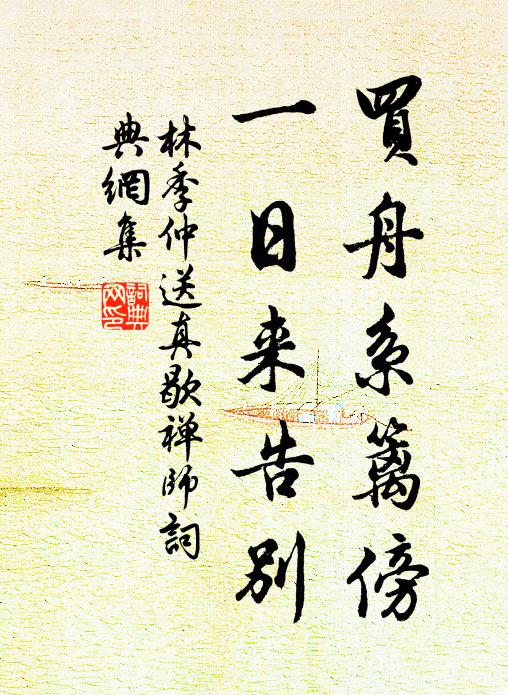 買舟系篱傍
一日来告别
林季仲送真歇禅师詞
典網集
詞典
网印